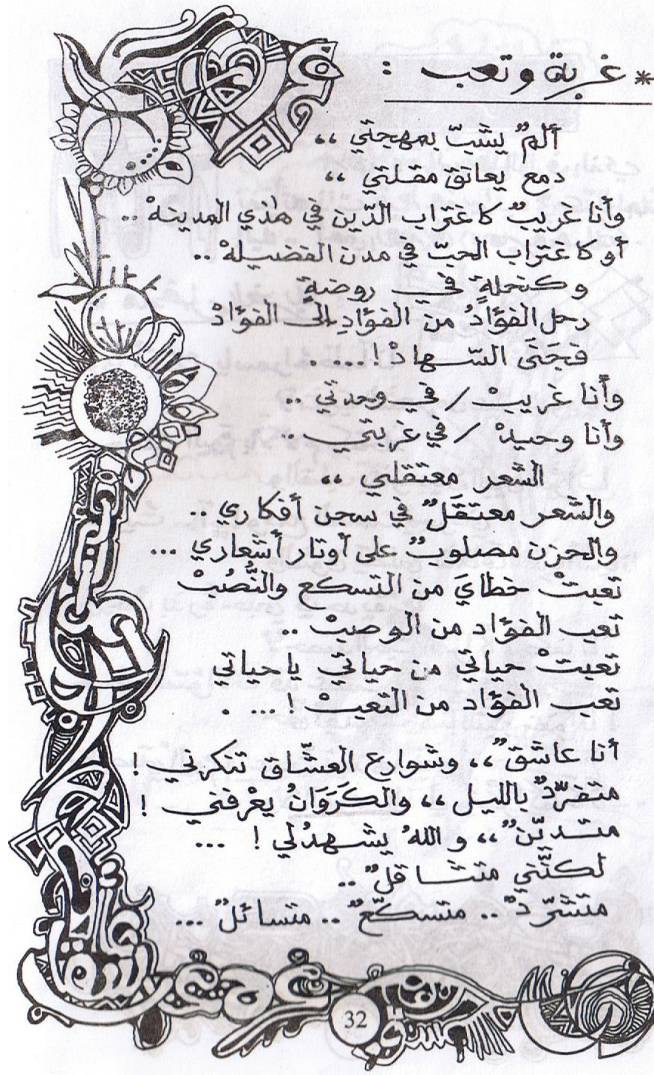 * غربة وتعب :
ألمٌ يشبّ بمهجتي ،،
دمع يعانق مقلتي ،،
وأنا غريبٌ كاغتراب الدّين في هٰذي المدينهْ ..
أو كاغتراب الحبّ في مدن الفضيلهْ ..
وكنحلةٍ في روضةٍ
رحل الفؤادُ من الفؤادِ إلى الفؤادْ
فجَنَى السّهادْ ! .....
وأنا غريبْ / في وحدتي ..
وأنا وحيدْ / في غربتي ..
الشعر معتقلي ،،
والشعر معتقَلٌ في سجن أفكاري ..
والحزن مصلوبٌ على أوتار أشعاري ...
تعبتْ خطايَ من التسكع والنُّصُبْ
تعب الفؤاد من الوصبْ ..
تعبتْ حياتي من حياتي ياحياتي
تعب الفؤاد من التعبْ ! ... .
أنا عاشقٌ ،، وشوارع العشّاق تنكرني !
متفرّدٌ بالليل ،، والكَرَوَانُ يعْرفني !
متديّنٌ ،، واللهُ يشهدُلي ! ...
لكنّني متثاقلٌ ..
متشرّدٌ .. متسكّعٌ .. متسائلٌ ...
32